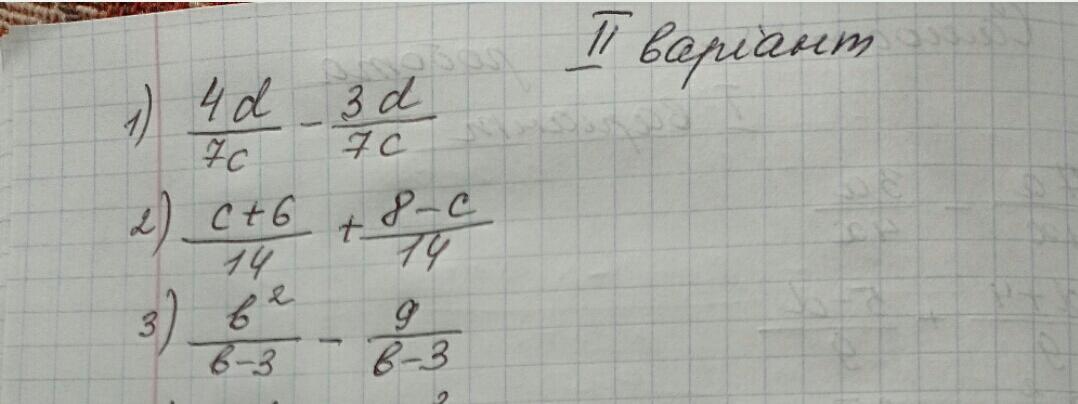 II варіант
1) 4d/7c - 3d/7c
2) c+6/14 + 8-c/14
3) в²/в-3 - 9/в-3